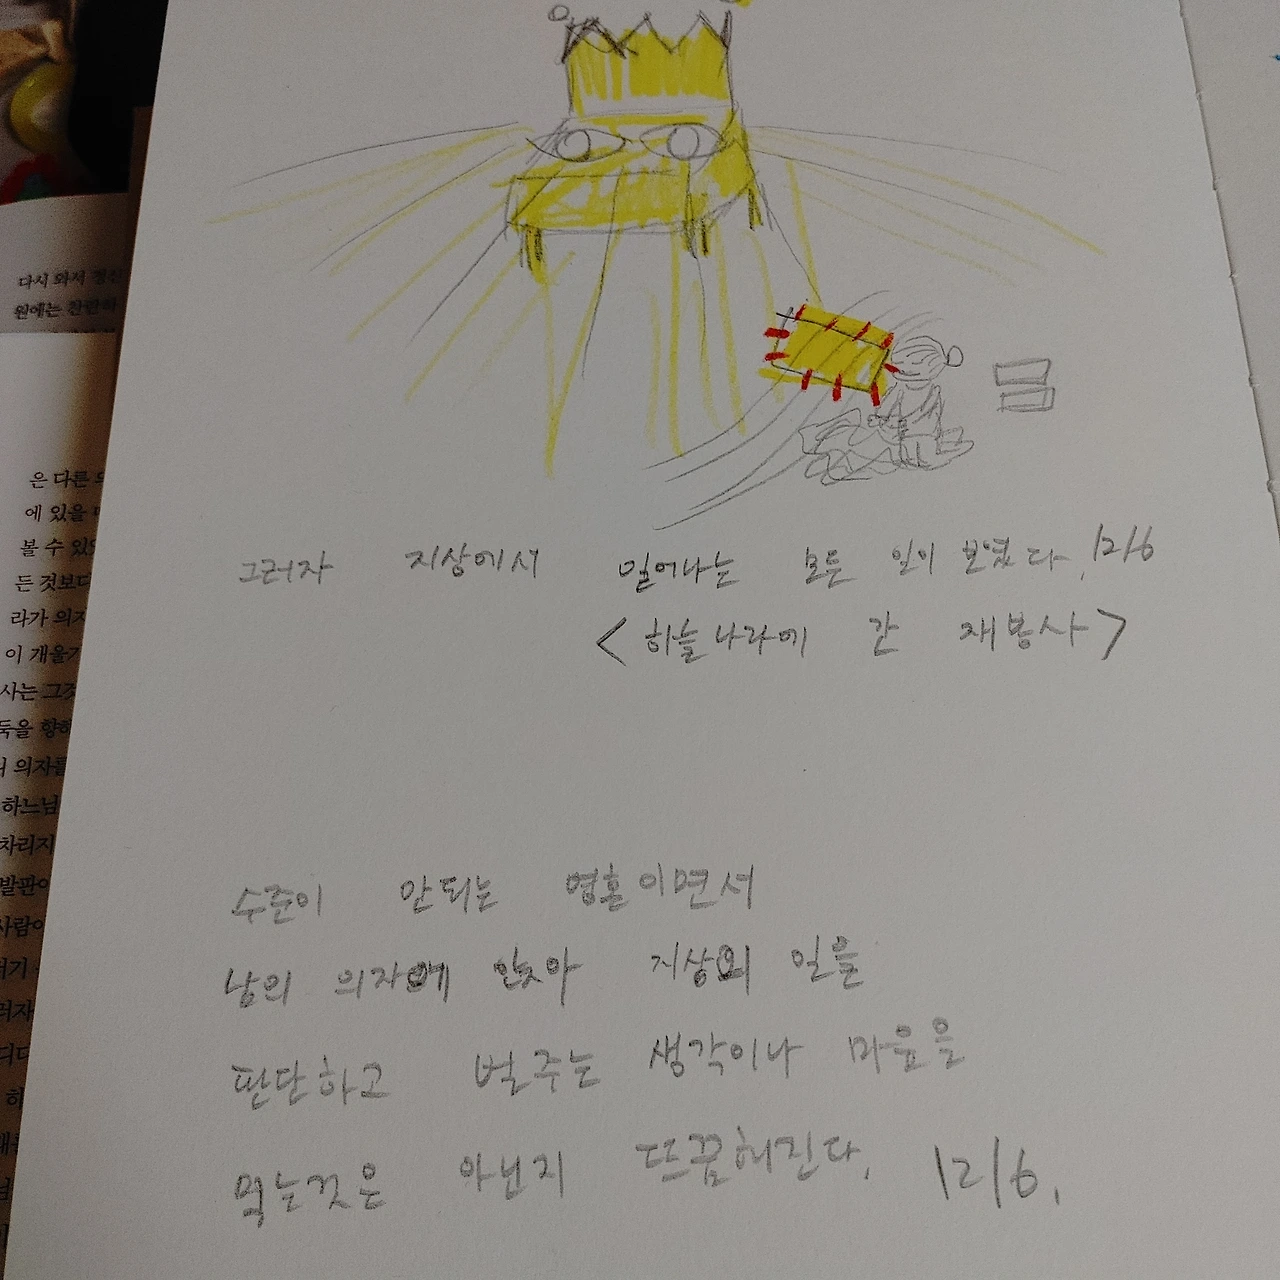 그러자 지상에서 일어나는 모든 일이 보였다. 12/6
<하늘나라에 간 재봉사>
수준이 안되는 영혼이면서
남의 의자에 앉아 지상의 일을
판단하고 벌주는 생각이나 마음을
먹는것은 아닌지 뜨끔해진다. 12/6.
다시 와서
원에는 찬란하
은 다른
에 있을
볼 수
든 것보다
라가 의자
이 개울가
사는 그것
둑을 향해
의자를
하느님
차리지
발판이
사람이